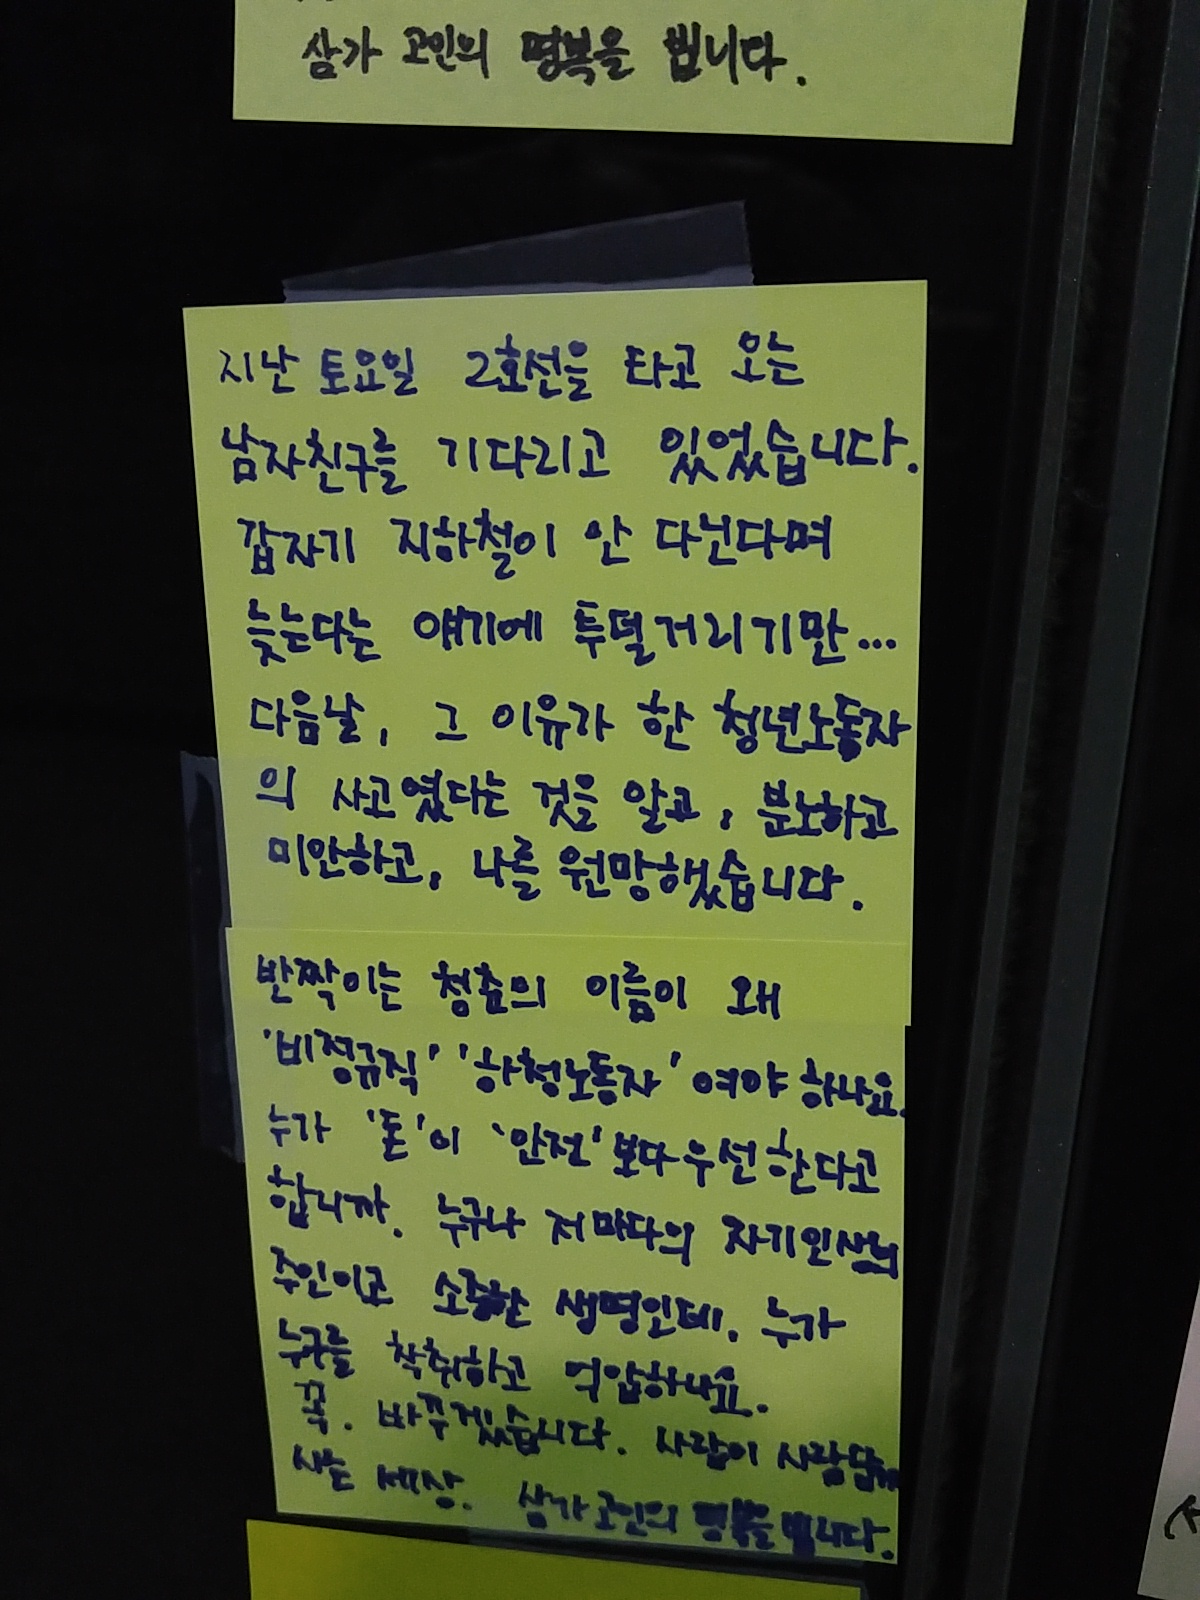 삼가 고인의 명복을 빕니다.
지난 토요일 2호선을 타고 오는
남자친구를 기다리고 있었습니다.
갑자기 지하철이 안 다닌다며
늦는다는 얘기에 투덜거리기만...
다음날, 그 이유가 한 청년노동자
의 사고였다는 것을 알고, 분노하고
미안하고, 나를 원망했습니다.
반짝이는 청춘의 이름이 왜
'비정규직' '하청노동자'여야 하나요.
누가 '돈'이 '안전'보다 우선한다고
합니까. 누구나 저마다의 자기인생의
주인이고 소중한 생명인데. 누가
누구를 착취하고 억압하나요.
꼭. 바꾸겠습니다. 사람이 사람답게
사는 세상. 삼가 고인의 명복을 빕니다.